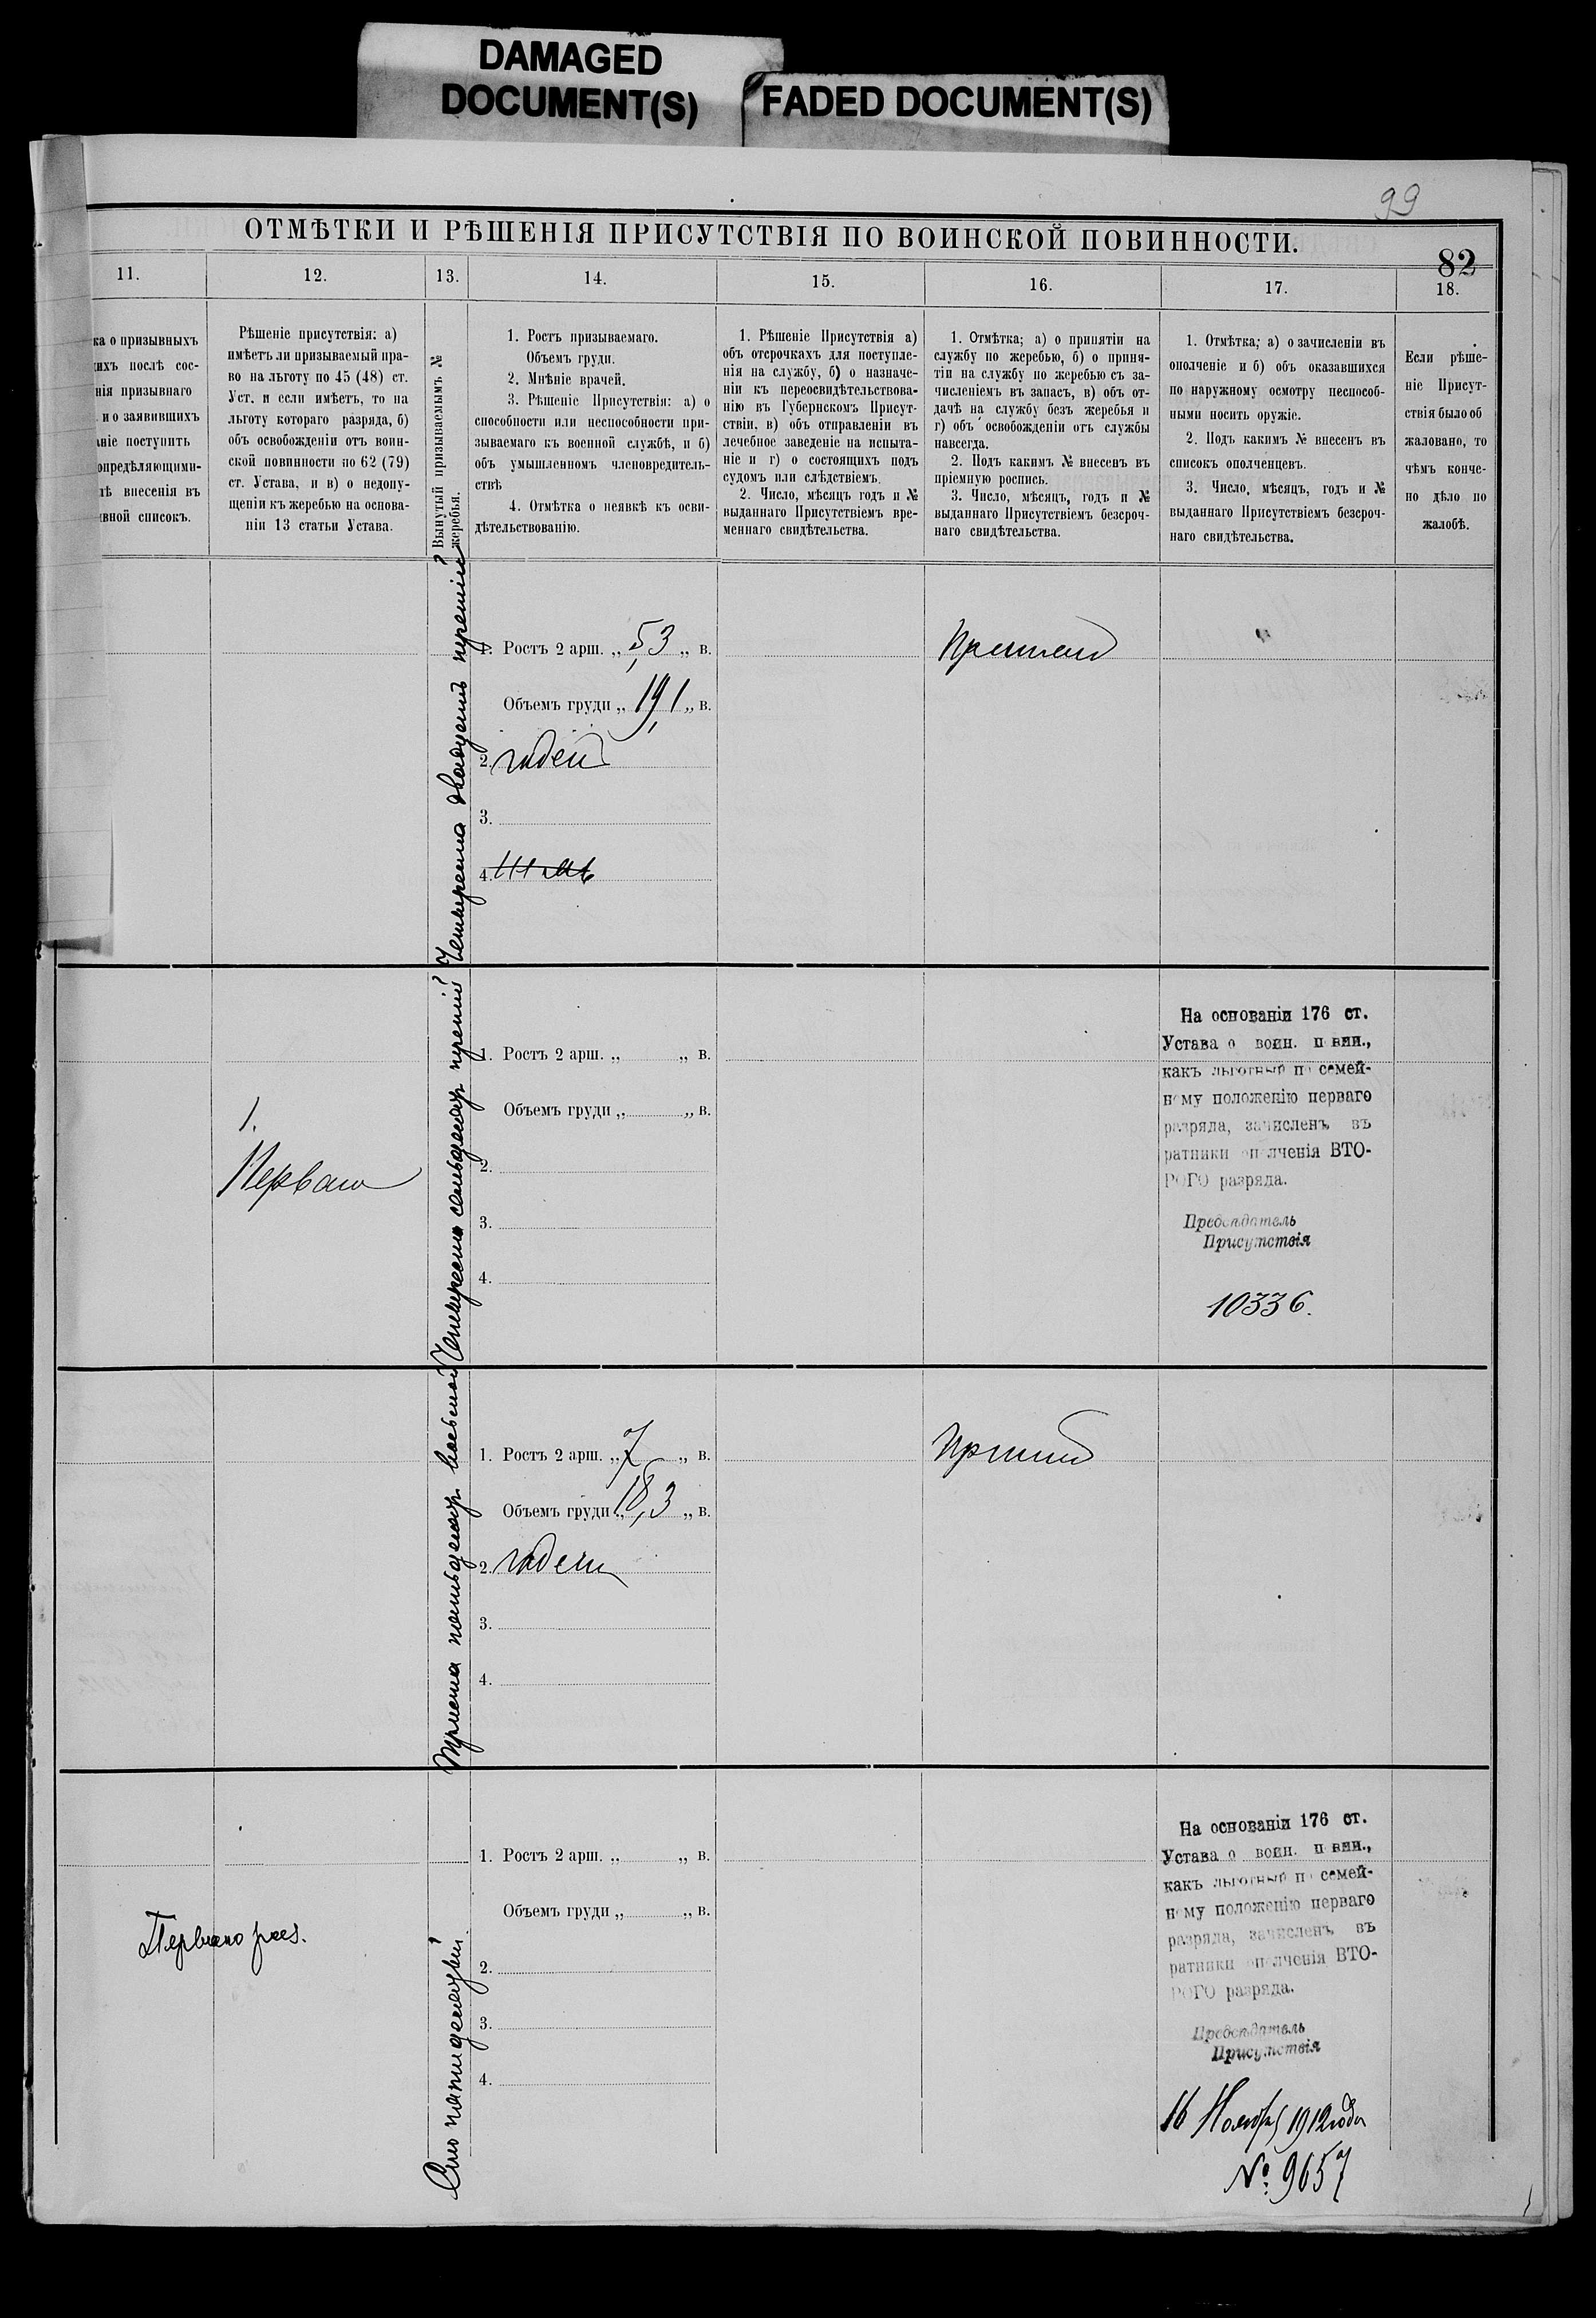 DAMAGED
DOCUMENT(S)
FADED DOCUMENT(S)
99
ОТМѢТКИ И РѢШЕНІЯ ПРИСУТСТВІЯ ПО ВОИНСКОЙ ПОВИННОСТИ.
82
11.
ка о призывныхъ
ихъ послѣ сос-
нія призывнаго
и о заявившихъ
аніе поступить
опредѣляющими-
лѣ внесенія въ
ивной списокъ.
12.
Рѣшеніе присутствія: а)
имѣетъ ли призываемый пра-
во на льготу по 45 (48) ст.
Уст. и если имѣетъ, то на
льготу котораго разряда, б)
объ освобожденіи отъ воин-
ской повинности по 62 (79)
ст. Устава, и в) о недопу-
щеніи къ жеребью на основа-
ніи 13 статьи Устава.
13.
Вынутый призываемымъ №
жеребья.
14.
1. Ростъ призываемаго.
Объемъ груди.
2. Мнѣніе врачей.
3. Рѣшеніе Присутствія: а) о
способности или неспособности при-
зываемаго къ военной службѣ, и б)
объ умышленномъ членовредитель-
ствѣ
4. Отмѣтка о неявкѣ къ осви-
дѣтельствованію.
15.
1. Рѣшеніе Присутствія а)
объ отсрочкахъ для поступле-
нія на службу, б) о назначе-
ніи къ переосвидѣтельствова-
нію въ Губернскомъ Присут-
ствіи, в) объ отправленіи въ
лечебное заведеніе на испыта-
ніе и г) о состоящихъ подъ
судомъ или слѣдствіемъ.
2. Число, мѣсяцъ годъ и №
выданнаго Присутствіемъ вре-
меннаго свидѣтельства.
16.
1. Отмѣтка; а) о принятіи на
службу по жеребью, б) о приня-
тіи на службу по жеребью съ за-
численіемъ въ запасъ, в) объ от-
дачѣ на службу безъ жеребья и
г) объ освобожденіи отъ службы
навсегда.
2. Подъ какимъ № внесенъ въ
пріемную роспись.
3. Число, мѣсяцъ, годъ и №
выданнаго Присутствіемъ безсроч-
наго свидѣтельства.
17.
1. Отмѣтка; а) о зачисленіи въ
ополченіе и б) объ оказавшихся
по наружному осмотру неспособ-
ными носить оружіе.
2. Подъ какимъ № внесенъ въ
списокъ ополченцевъ.
3. Число, мѣсяцъ, годъ и №
выданнаго Присутствіемъ безсроч-
наго свидѣтельства.
18.
Если рѣше-
ніе Присут-
ствія было об
жаловано, то
чѣмъ конче-
но дѣло по
жалобѣ.
Четыреста двадцать третій
1. Ростъ 2 арш. „ 5,3 „ в.
Объемъ груди „ 19,1 „ в.
2. годенъ
3.
4.
Принятъ
1.
Перваго
Четыреста семьдесятъ третій
1. Ростъ 2 арш. „ „ в.
Объемъ груди „ „ в.
2.
3.
4.
На основаніи 176 ст.
Устава о воин. повин.,
какъ льготный по семей-
ному положенію перваго
разряда, зачисленъ въ
ратники ополченія ВТО-
РОГО разряда.
Предсѣдатель
Присутствія
10336.
Триста пятьдесятъ восьмой
1. Ростъ 2 арш. „ 7 „ в.
Объемъ груди „ 18,3 „ в.
2. годенъ
3.
4.
Принятъ
Перваго раз.
Сто пятидесятый
1. Ростъ 2 арш. „ „ в.
Объемъ груди „ „ в.
2.
3.
4.
На основаніи 176 ст.
Устава о воин. повин.,
какъ льготный по семей-
ному положенію перваго
разряда, зачисленъ въ
ратники ополченія ВТО-
РОГО разряда.
Предсѣдатель
Присутствія
16 Ноября 1912 года
№ 9657